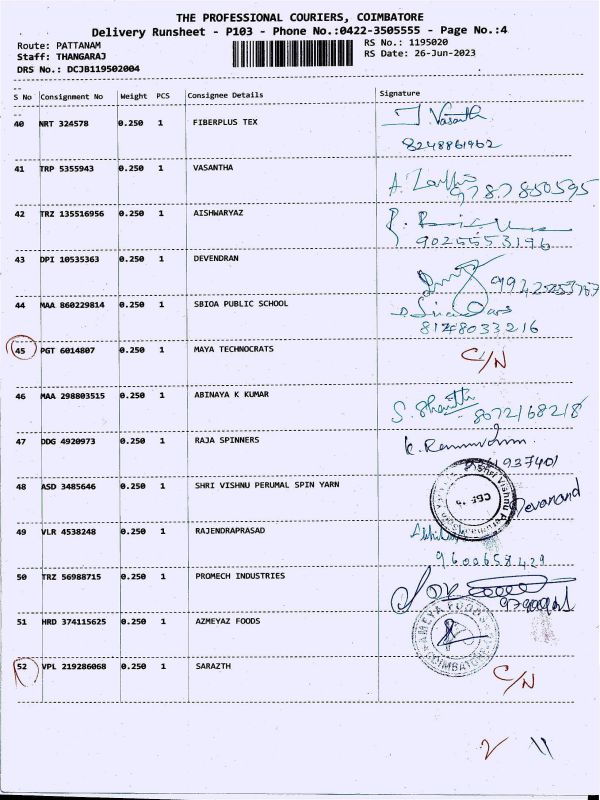 THE PROFESSIONAL COURIERS, COIMBATORE
Delivery Runsheet - P103 - Phone No.:0422-3505555 - Page No.:4
Route: PATTANAM
RS No.: 1195020
Staff: THANGARAJ
RS Date: 26-Jun-2023
DRS No.: DCJB119502004
S No Consignment No Weight PCS Consignee Details Signature
40 NRT 324578 0.250 1 FIBERPLUS TEX J Vasanth
8248861962
41 TRP 5355943 0.250 1 VASANTHA
9787850595
42 TRZ 135516956 0.250 1 AISHWARYAZ
9025553196
43 DPI 10535363 0.250 1 DEVENDRAN
44 MAA 860229814 0.250 1 SBIOA PUBLIC SCHOOL
8148033216
45 PGT 6014807 0.250 1 MAYA TECHNOCRATS C/N
46 MAA 298803515 0.250 1 ABINAYA K KUMAR S. Shanthi 8072168218
47 DDG 4920973 0.250 1 RAJA SPINNERS
48 ASD 3485646 0.250 1 SHRI VISHNU PERUMAL SPIN YARN Devanand
49 VLR 4538248 0.250 1 RAJENDRAPRASAD
9600658429
50 TRZ 56988715 0.250 1 PROMECH INDUSTRIES
51 HRD 374115625 0.250 1 AZMEYAZ FOODS AMEYA FOODS COIMBATORE
52 VPL 219286068 0.250 1 SARAZTH C/N
2 11